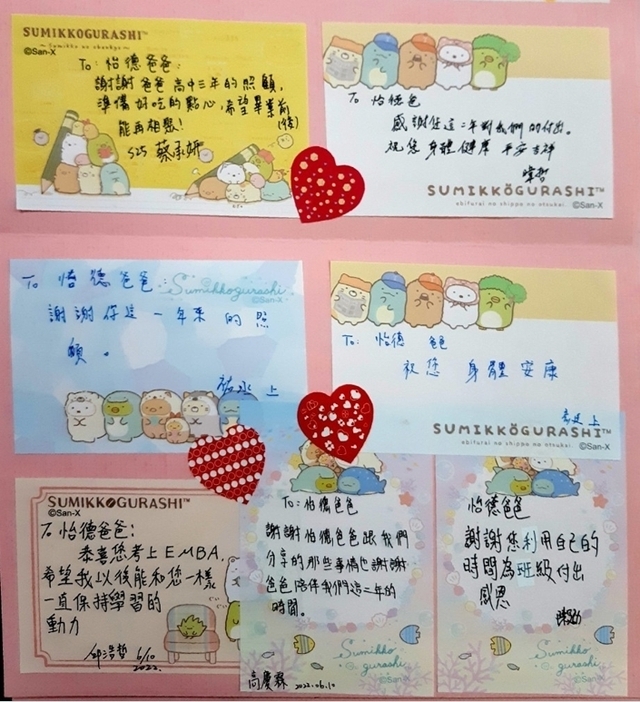 SUMIKKOGURASHI™
~ Sumikko no obenkyo ~
©San-X
To: 怡德爸爸:
謝謝爸爸高中三年的照顧,
準備好吃的點心,希望畢業前
能再相聚!
525 蔡承妍
To 怡德爸
感謝您這二年對我們的付出。
祝您身體健康 平安吉祥
SUMIKKOGURASHI™
ebifurai no shippo no otsukai. ©San-X
To 怡德爸爸
Sumikkogurashi
©San-X
謝謝你這一年來的照
顧。
上
To: 怡德 爸
祝您 身體安康
上
SUMIKKOGURASHI™
ebifurai no shippo no otsukai. ©San-X
SUMIKKOGURASHI™
©San-X
To 怡德爸爸:
恭喜您考上EMBA,
希望我以後能和您一樣
一直保持學習的
動力
邱浩哲 6/10
2022.
To: 怡德爸爸
謝謝怡德爸爸跟我們
分享的那些事情也謝謝
爸爸陪伴我們這二年的
時間。
Sumikko
gurashi
©San-X
2022.06.10
怡德爸爸
謝謝您利用自己的
時間為班級付出
感恩
Sumikko
gurashi
©San-X